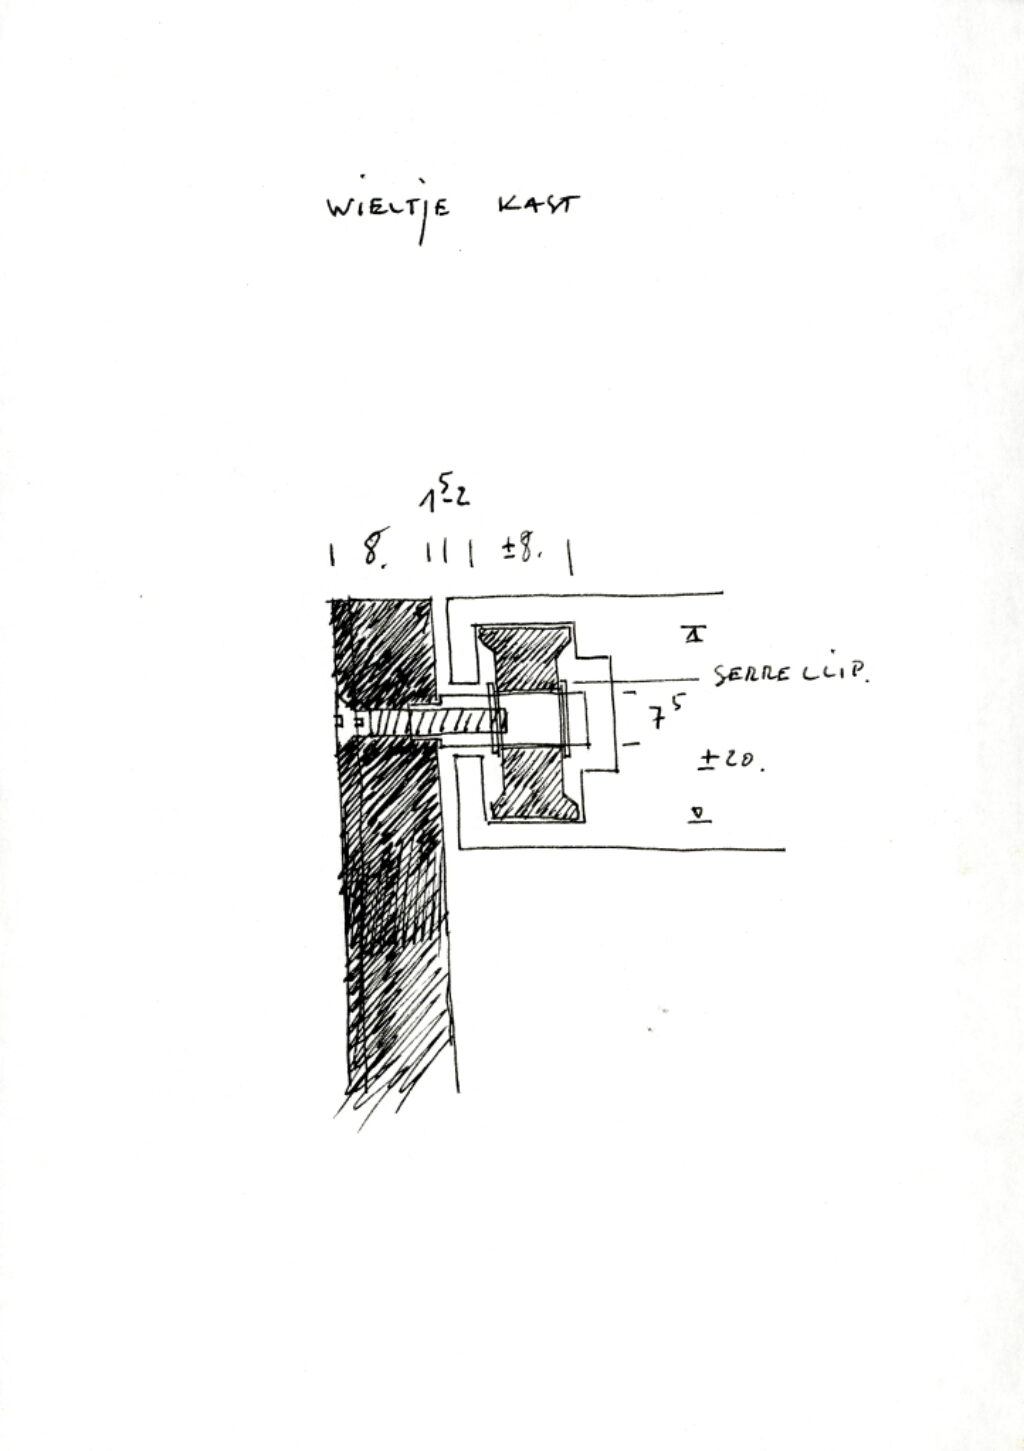 WIELTJE KAST
1⁵-2
8. ±8.
SERRE CLIP.
7⁵
±20.